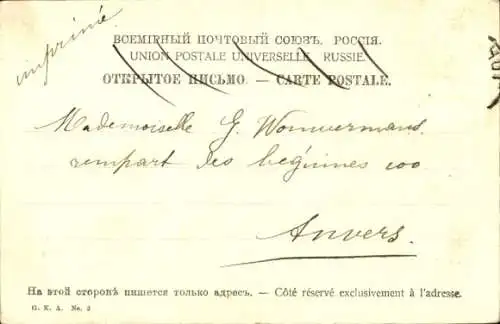 imprimé
ВСЕМІРНЫЙ ПОЧТОВЫЙ СОЮЗЪ. РОССІЯ.
UNION POSTALE UNIVERSELLE. RUSSIE.
ОТКРЫТОЕ ПИСЬМО. — CARTE POSTALE.
Mademoiselle G. Wouwermans.
rempart des béguines 100
Anvers.
На этой сторонѣ пишется только адресъ. — Côté réservé exclusivement à l'adresse.
G. K. A. No. 2